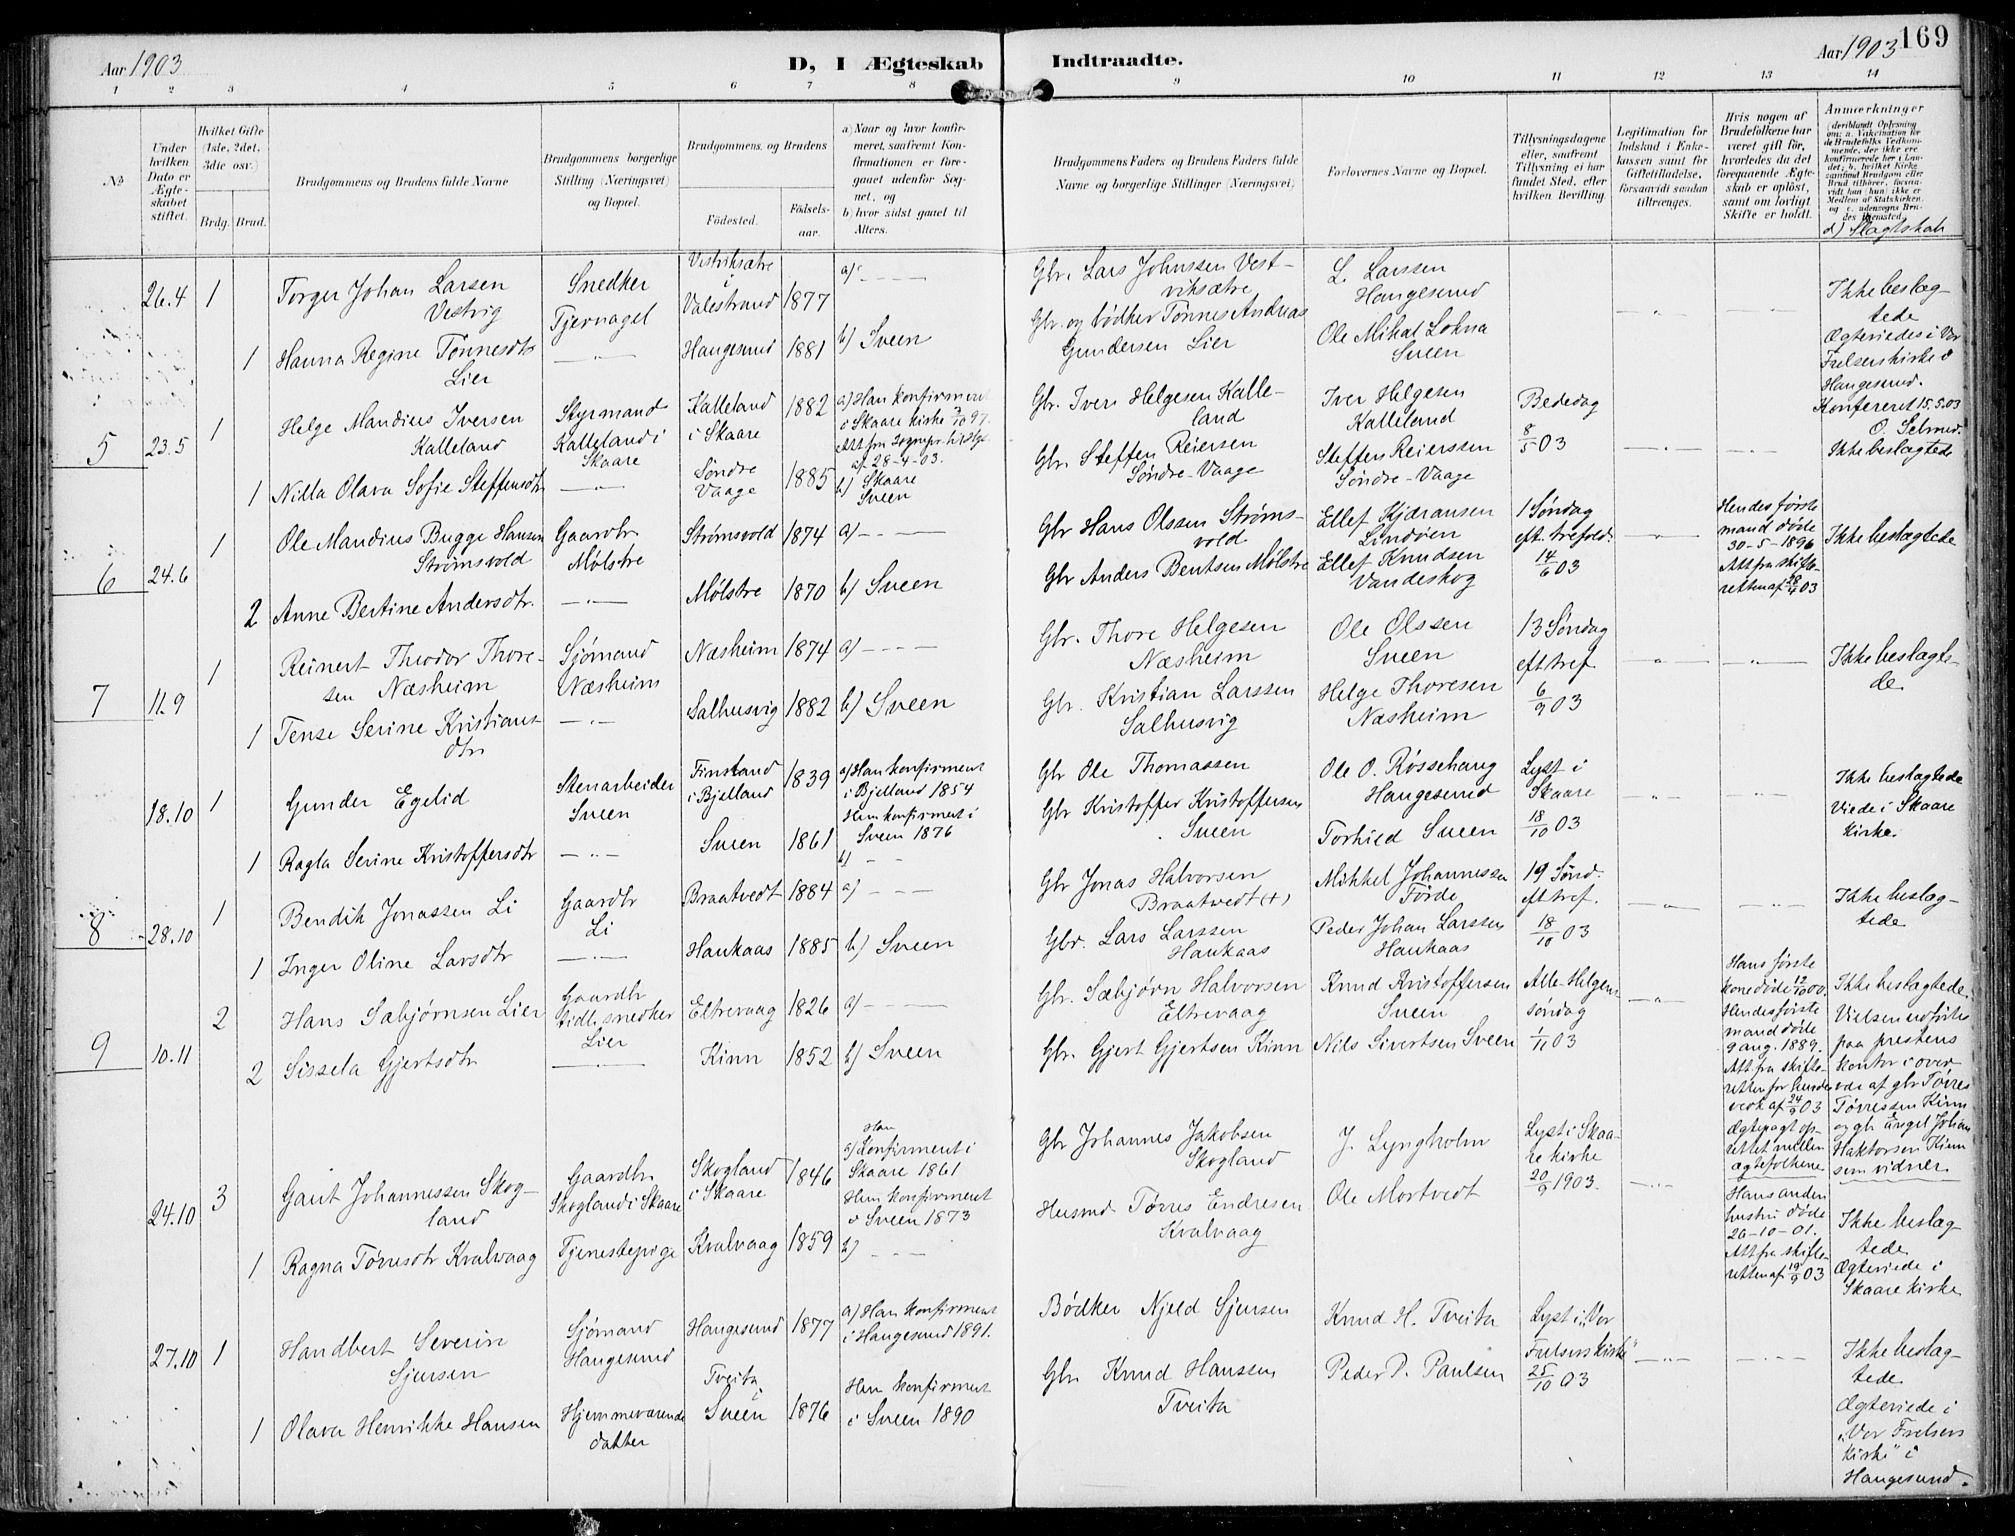 Aar 1903
D, I Ægteskab Indtraadte.
Aar 1903 169
1 2 3 4 5 6 7 8 9 10 11 12 13 14
No
Under hvilken Dato er Ægteskabet stiftet.
Hvilket Gifte (1ste, 2det, 3die osv.)
Brdg. Brud.
Brudgommens og Brudens fulde Navne
Brudgommens borgerlige Stilling (Næringsvei) og Bopæl.
Brudgommens og Brudens
Fødested.
Fødselsaar.
a) Naar og hvor konfirmeret, saafremt Konfirmationen er foregaaet udenfor Sognet, og
b) hvor sidst gaaet til Alters.
Brudgommens Faders og Brudens Faders fulde Navne og borgerlige Stillinger (Næringsvei)
Forlovernes Navne og Bopæl.
Tillysningsdagene eller, saafremt Tillysning ei har fundet Sted, efter hvilken Bevilling.
Legitimation for Indskud i Enkekassen samt for Giftetilladelse, forsaavidt saadan tiltrænges.
Hvis nogen af Brudefolkene har været gift før, hvorledes da det foregaaende Ægteskab er opløst, samt om lovligt Skifte er holdt.
Anmærkninger
d) Slægtskab
26.4 1 Torger Johan Larsen Vestvig
Snedker Tjernagel
Vestviksætre i Valestrand 1877 a) — — —
Gbr. Lars Johnssen Vestviksætre
L. Larssen Haugesund
Ikke beslægtede
Ægteviedes i Vor Frelsers kirke i Haugesund.
1 Hanna Regine Tønnesdtr Lier
— " — Haugesund 1881 b) Sveen
Gbr. og bødker Tønnes Andreas Gundersen Lier
Ole Mikal Lokna Sveen
Konfereret 15.5.03 O. Selmer.
5 23.5 1 Helge Mandius Iversen Kalleland
Styrmand Kalleland i Skaare
Kalleland i Skaare 1882
a) Han konfirmeret i Skaare kirke 3/10 97. Att fra sognepr. til Hgs. af 28-4-03.
Gbr. Iver Helgesen Kalleland
Iver Helgesen Kalleland
Bededag 8/5 03
Ikke beslægtede
1 Nilla Olava Sofie Steffensdtr
— " — Søndre Vaage 1885 b) Skaare Sveen
Gbr. Steffen Reiersen Søndre-Vaage
Steffen Reierssen Søndre-Vaage
6 24.6 1 Ole Mandius Bugge Hansen Strømsvold
Gaardbr Mølstre
Strømsvold 1874 a) — — —
Gbr Hans Olssen Strømsvold
Ellef Kjdransen Lindøen
1 Søndag eft. trefold. 14/6 03
Hendes første mand døde 30-5-1896 Att fra skifteretten af 28/4 03
Ikke beslægtede
2 Anne Bertine Andersdtr.
— " — Mølstre 1870 b) Sveen
Gbr Anders Bentsen Mølstre
Ellef Knudsen Vandeskog
7 11.9 1 Reinert Theodor Thoresen Næsheim
Sjømand Næsheim
Næsheim 1874 a) — — —
Gbr. Thore Helgesen Næsheim
Ole Olssen Sveen
13 Søndag eft tref. 6/9 03
Ikke beslægtede
1 Tense Serine Kristiansdtr
— " — Salhusvig 1882 b) Sveen
Gbr. Kristian Larssen Salhusvig
Helge Thoresen Næsheim
18.10 1 Gunder Egelid
Stenarbeider Sveen
Finstand i Bjelland 1839
a) Han konfirmeret i Bjelland 1854
Gbr Ole Thomassen
Ole O. Røssehaug Haugesund
Lyst i Skaare 18/10 03
Ikke beslægtede Viede i Skaare kirke.
1 Ragla Serine Kristoffersdtr
— " — Sveen 1861
Hun konfirmert i Sveen 1876 b) — —
Gbr Kristoffer Kristoffersen Sveen
Torhild Sveen
8 28.10 1 Bendik Jonassen Li
Gaardbr Li
Braatvedt 1884 a) — — —
Gbr Jonas Halvorsen Braatvedt (+)
Mikkel Johannessen Førde
19 Sønd. eft tref. 18/10 03
Ikke beslægtede
1 Inger Oline Larsdtr
— " — Haukaas 1885 b) Sveen
Gbr. Lars Larssen Haukaas
Peder Johan Larssen Haukaas
9 10.11 2 Hans Sæbjørnsen Lier
Gaardbr tidl. snedker Lier
Eltrevaag 1826 a) — — —
Gbr. Sæbjørn Halvorsen Eltrevaag
Knud Kristoffersen Sveen
Alle-Helgens søndag 1/11 03
Hans første kone døde 12/10 00. Hendes første mand døde 9 aug. 1889. Att fra skifteretten for hendes verk. af 24/9 03 Ægtepagt oprettet mellem ægtefolkene
Ikke beslægtede. Vielsen udførtes paa prestens kontor i overvæde af gbr Tørres Tørressen Kinn og gbr Engel Johan Haktorsen Kinn som vidner.
2 Sissela Gjertsdtr
— " — Kinn 1852 b) Sveen
Gbr. Gjert Gjertsen Kinn
Nils Sivertsen Sveen
24.10 3 Gaut Johannessen Skogland
Gaardbr Skogland i Skaare
Skogland i Skaare 1846
a) Han Konfirmert i Skaare 1861
Gbr Johannes Jakobsen Skogland
J. Lyngholm
Lyst i Skaare kirke 20/9 1903.
Hans anden hustru døde 26-10-01. Att fra skifteretten af 19/9 03
Ikke beslægtede Ægteviede i Skaare kirke
1 Ragna Tørresdtr Kvalvaag
Tjenestepige Kvalvaag 1859
Hun konfirmert i Sveen 1873 b) — — —
Husmd Tørres Endresen Kvalvaag
Ole Mortvedt
27.10 1 Handbert Severin Sjursen
Sjømand Haugesund
Haugesund 1877
a) Han konfirmert i Haugesund 1891.
Bødker Njeld Sjursen
Knud H. Tveita
Lyst i „Vor Frelsers kirke" 25/10 03
Ikke beslægtede Ægteviede i „Vor Frelsers kirke" i Haugesund.
1 Olava Henrikke Hansen
Hjemmeværende datter
Tveita i Sveen 1876
Hun konfirmert i Sveen 1890
Gbr Knud Hanssen Tveita
Peder P. Paulsen